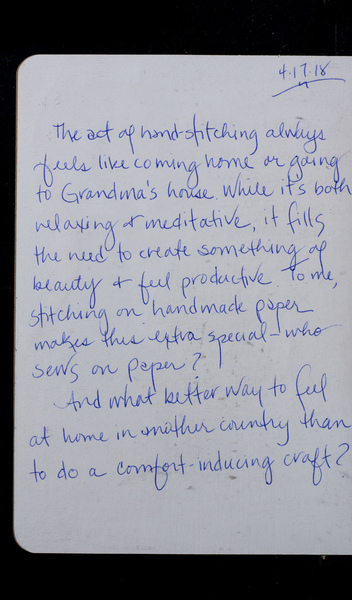 4.17.18
The act of hand-stitching always
feels like coming home or going
to Grandma's house. While it's both
relaxing & meditative, it fills
the need to create something of
beauty & feel productive. To me,
stitching on handmade paper
makes this extra special - who
sews on paper?
And what better way to feel
at home in another country than
to do a comfort-inducing craft?